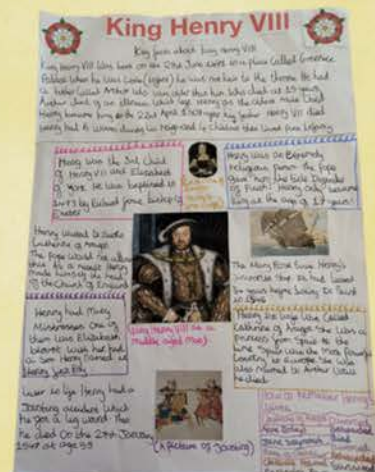 King Henry VIII
Key facts about king Henry VIII
King Henry VIII was born on the 28th June in a place called Greenwich
Palace. When he was born he was not heir to the throne. He had
a brother called Arthur who was older than him who died at 15 years
Arthur died of an illness which left Henry as the
Henry became king on the 22nd April 1509 after his father Henry VII died
Henry had 6 wives during his reign and 4 children that lived
Henry was the 3rd Child
of Henry VII and Elizabeth
of York. He was baptised in
by Richard Foxe bishop of
Exeter
Henry was an Extremely
religious person the Pope
gave him the title Defender
of Faith. Henry only became
King at the age of 17 years!
Henry wanted to divorce
Catherine of Aragon
The Pope would not allow
this. As a result Henry
made himself the head
of the Church of England
The Mary Rose was Henry's
favourite ship. It had lasted
34 years before being
in 1545
Henry had many
Mistresses. One of
them was Elizabeth
blount who had
a Son Henry named
Henry Fitz Roy
(King Henry VIII as a
middle aged man)
Henry's first wife was called
Catherine of Aragon. She was a
princess from Spain. At the
time Spain was the most powerful
Country in Europe. She was
also married to Arthur before
he died
Later in life Henry had a
Jousting accident which
he got a leg wound. Then
he died on the 28th January
1547 at age 55
(A picture of Jousting)
How to remember Henry's
wives
Catherine of Aragon
Anne Boleyn
Jane Seymour